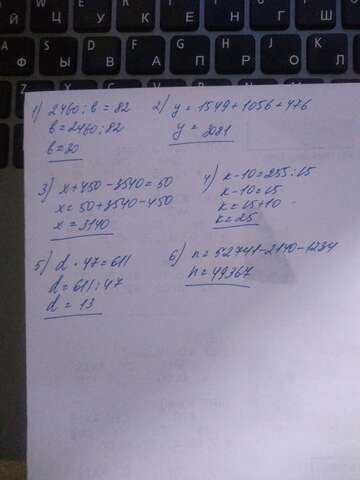 Ф Ы В А П
1) 2460 : b = 82
b = 2460 : 82
b = 30
2) y = 1549 + 1056 + 476
y = 3081
3) x + 450 - 3540 = 50
x = 50 + 3540 - 450
x = 3140
4) k - 10 = 255 : 15
k - 10 = 15
k = 15 + 10
k = 25
5) d · 47 = 611
d = 611 : 47
d = 13
6) n = 52741 - 2140 - 1234
n = 49367